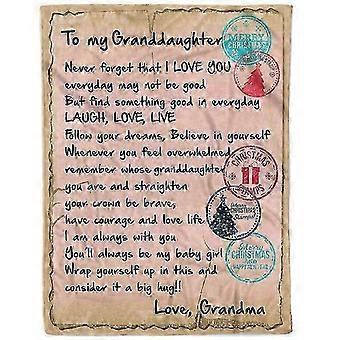 To my Granddaughter
MERRY
CHRISTMAS
Never forget that I LOVE YOU
everyday may not be good
But find something good in everyday
LAUGH, LOVE, LIVE
Follow your dreams, Believe in yourself
Whenever you feel overwhelmed
remember whose granddaughter
CHRISTMAS
you are and straighten
your crown be brave,
have courage and love life
I am always with you
You'll always be my baby girl
Merry
CHRISTMAS
Wrap yourself up in this and
consider it a big hug!!
Love, Grandma